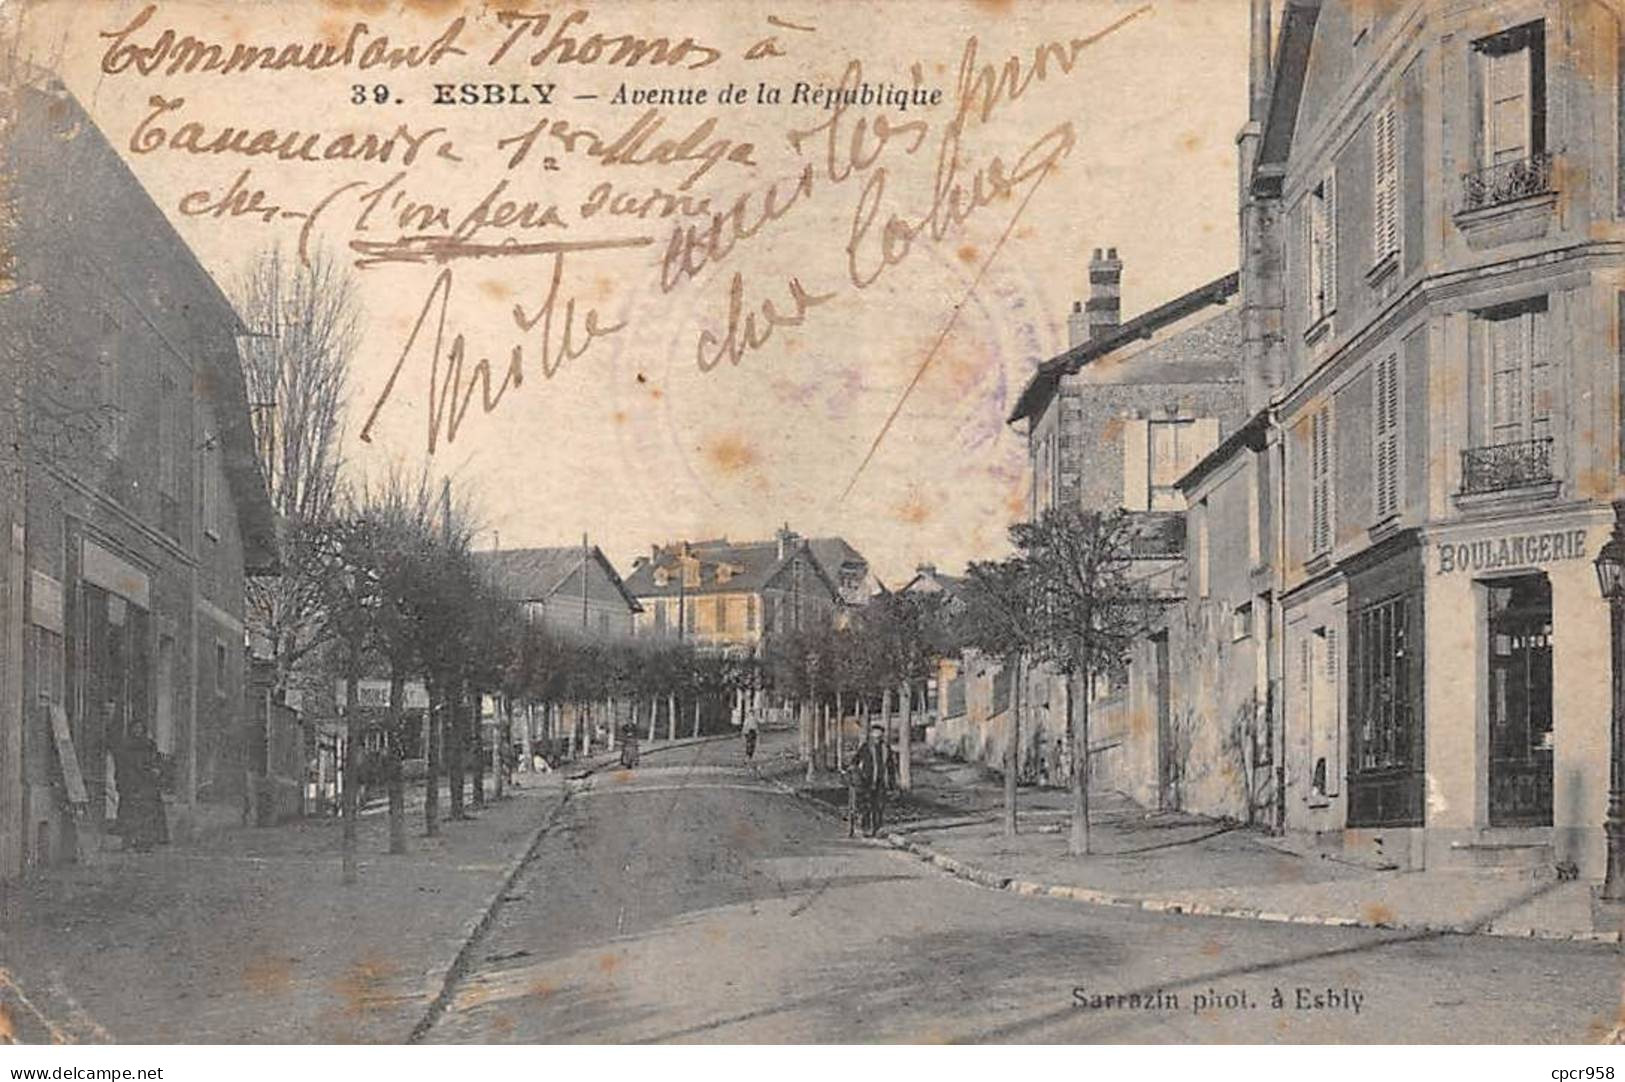 Commandant Thomas à
39. ESBLY — Avenue de la République
Tananarive 1er Malga
cher (l'on fera suivre
Mille amitiés mon
cher
BOULANGERIE
Sarrazin phot. à Esbly
delcampe.net
cpcr958